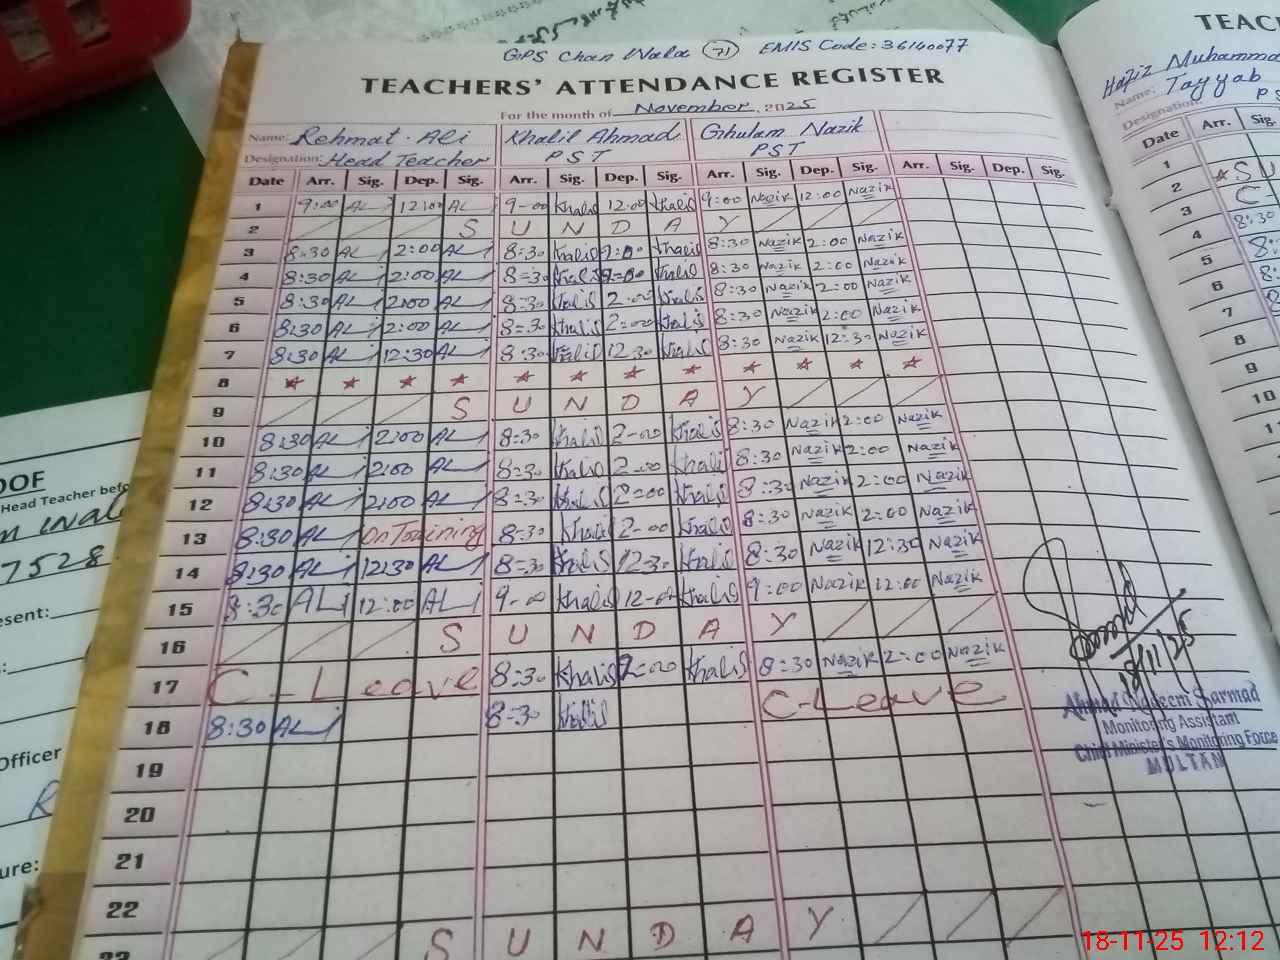 GPS Chan Wala (71) EMIS Code: 36140077
TEACHERS' ATTENDANCE REGISTER
For the month of November, 2025
Name: Rehmat Ali Khalil Ahmad Ghulam Nazik
Designation: Head Teacher PST PST
Date Arr. Sig. Dep. Sig. Arr. Sig. Dep. Sig. Arr. Sig. Dep. Sig. Arr. Sig. Dep. Sig.
1 9:00 AL 12:00 AL 9-00 Khalil 12:00 Khalil 9:00 Nazik 12:00 Nazik
2 S U N D A Y
3 8:30 AL 2:00 AL 8:30 Khalil 2:00 Khalil 8:30 Nazik 2:00 Nazik
4 8:30 AL 2:00 AL 8=30 Khalil 2=00 Khalil 8:30 Nazik 2:00 Nazik
5 8:30 AL 2:00 AL 8=30 Khalil 2-00 Khalil 8:30 Nazik 2:00 Nazik
6 8:30 AL 2:00 AL 8=30 Khalil 2=00 Khalil 8:30 Nazik 2:00 Nazik
7 8:30 AL 12:30 AL 8:30 Khalil 12:30 Khalil 8:30 Nazik 12:30 Nazik
8
9 S U N D A Y
10 8:30 AL 2:00 AL 8=30 Khalil 2-00 Khalil 8:30 Nazik 2:00 Nazik
11 8:30 AL 2:00 AL 8=30 Khalil 2-00 Khalil 8:30 Nazik 2:00 Nazik
12 8:30 AL 2:00 AL 8=30 Khalil 2=00 Khalil 8:30 Nazik 2:00 Nazik
13 8:30 AL On Training 8=30 Khalil 2-00 Khalil 8:30 Nazik 2:00 Nazik
14 8:30 AL 12:30 AL 8=30 Khalil 12:30 Khalil 8:30 Nazik 12:30 Nazik
15 8:30 AL 12:00 AL 9-00 Khalil 12-00 Khalil 9:00 Nazik 12:00 Nazik
16 S U N D A Y
17 C-Leave 8=30 Khalil 2:00 Khalil 8:30 Nazik 2:00 Nazik
18 8:30 AL 8=30 Khalil C-Leave
19
20
21
22
23 S U N D A Y
18/11/25
Ahmad Nadeem Sarmad
Monitoring Assistant
Chief Minister's Monitoring Force
MULTAN
TEACH
Hafiz Muhammad
Name: Tayyab
Designation: PS
Date Arr. Sig.
1
2 SU
3 C-
4 8:30
5 8:
6 8:
7
8
9
10
OOF
Head Teacher befo
7528
esent:
Officer
R
ure:
18-11-25 12:12